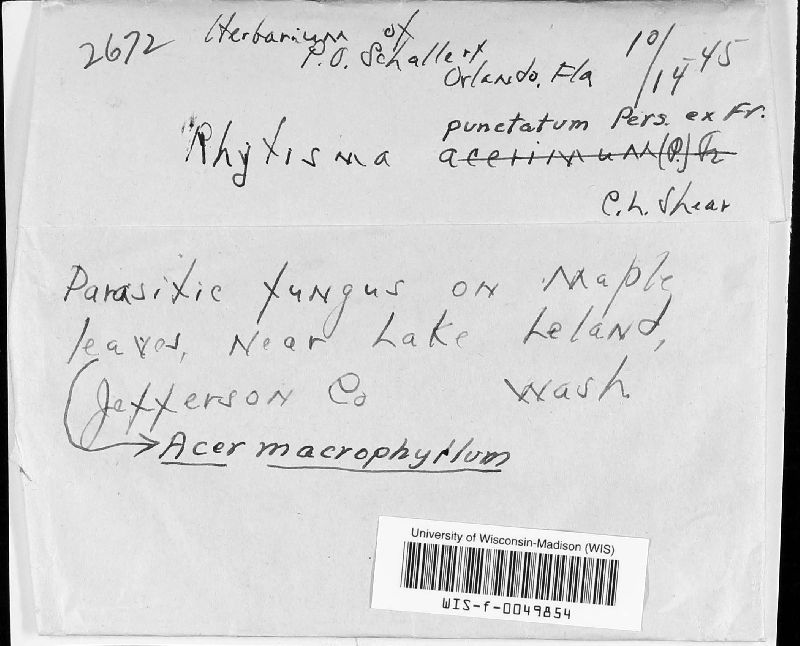 2672 Herbarium of
P.O. Schallert
Orlando, Fla
10/14-45
punctatum Pers. ex Fr.
Rhytisma acerinum (P.) Fr
C.L. Shear
Parasitic fungus on Maple
leaves, Near Lake Leland,
Jefferson Co Wash.
Acer macrophyllum
University of Wisconsin-Madison (WIS)
WIS-f-0049854